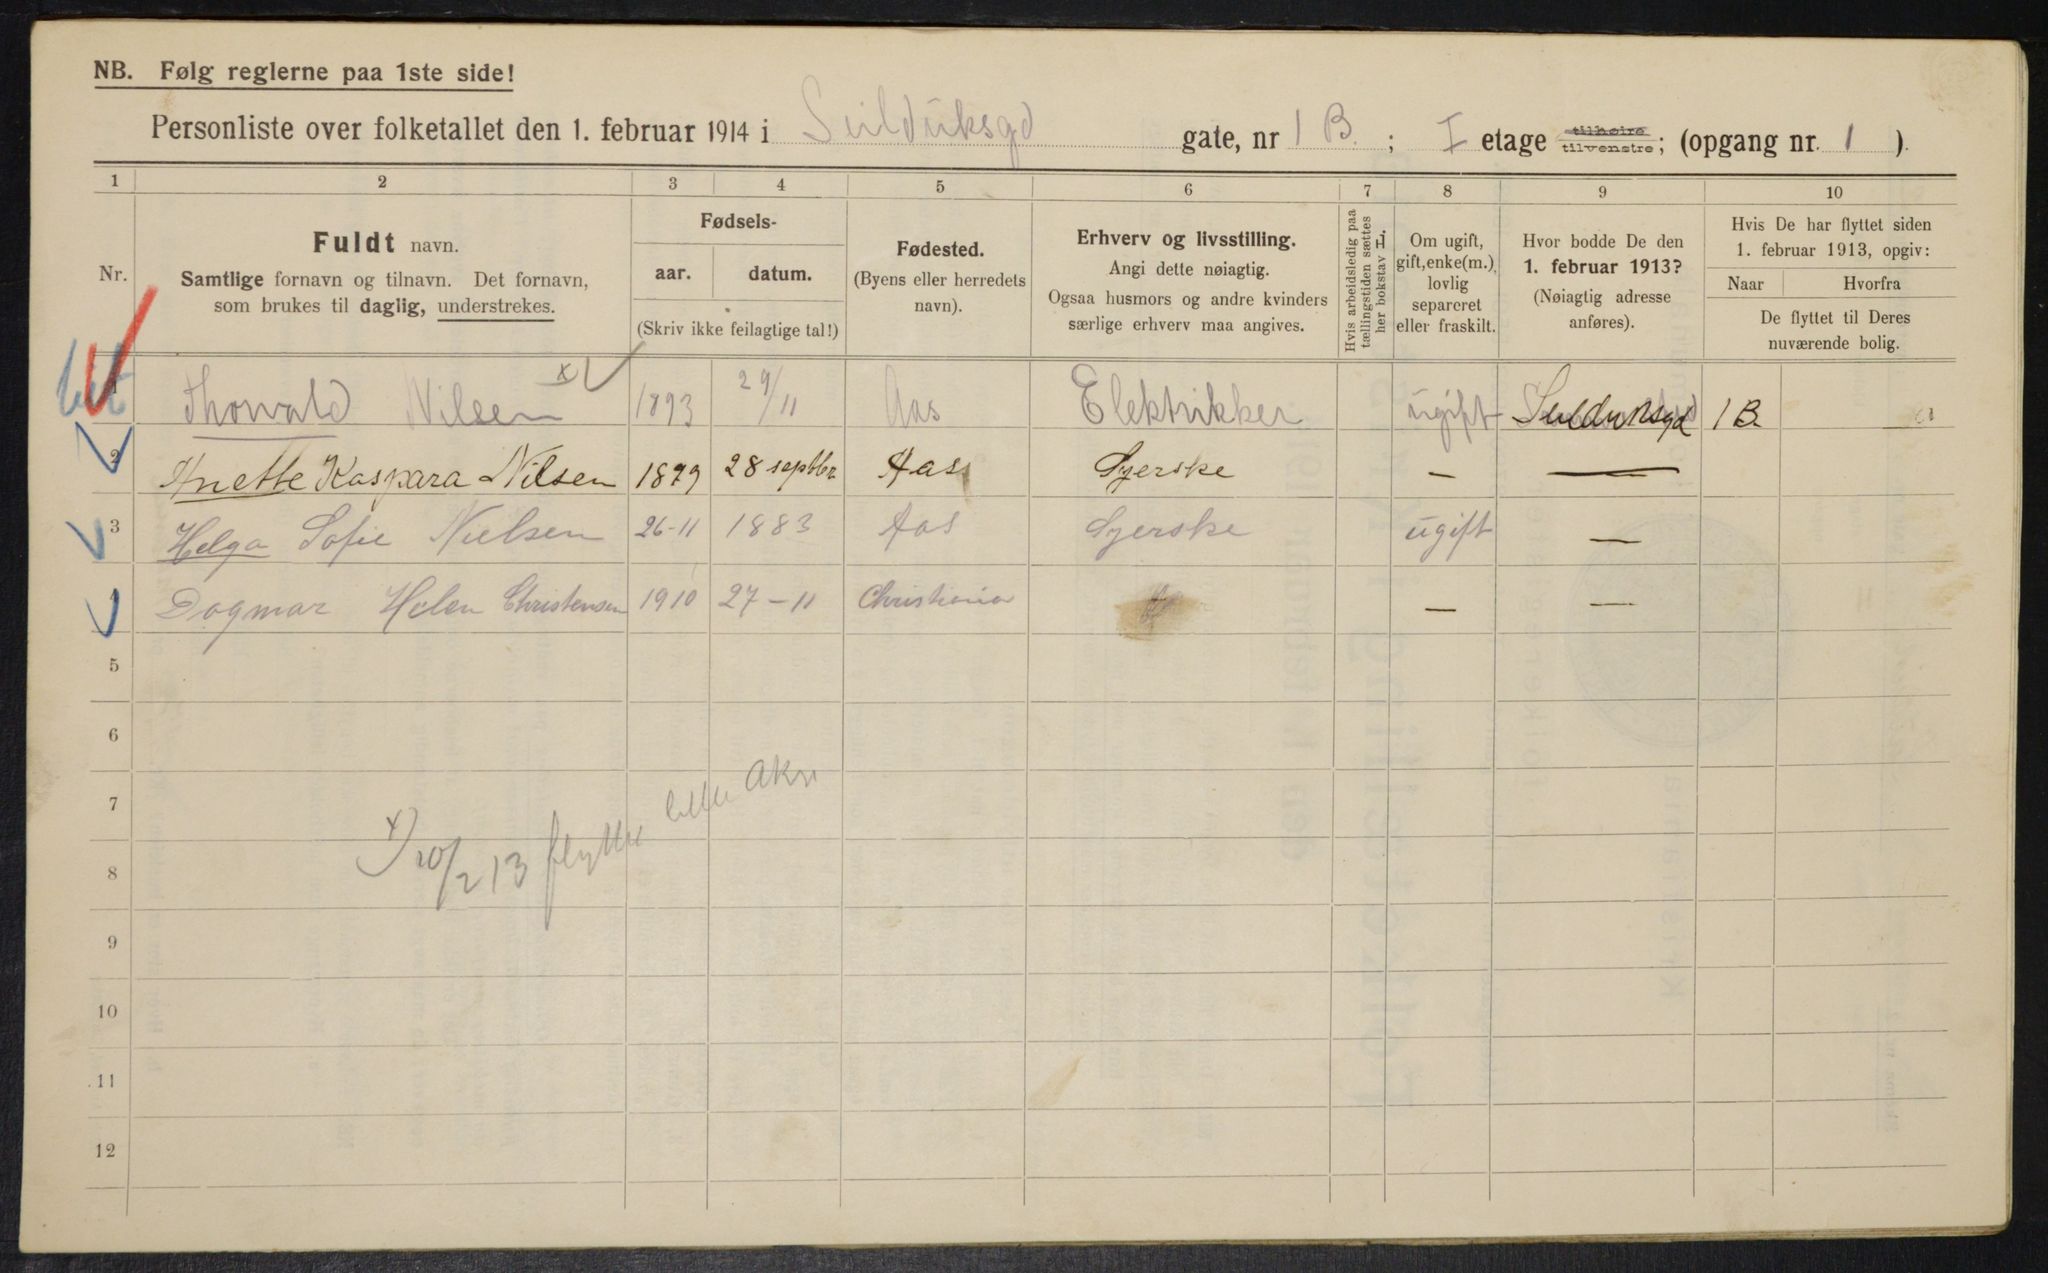 NB. Følg reglerne paa 1ste side!
Personliste over folketallet den 1. februar 1914 i Seilduksgd gate, nr 1 B. ; I etage tilhøire tilvenstre; (opgang nr. 1 ).
1 2 3 4 5 6 7 8 9 10
Nr.
Fuldt navn.
Samtlige fornavn og tilnavn. Det fornavn,
som brukes til daglig, understrekes.
Fødsels-
aar. datum.
(Skriv ikke feilagtige tal!)
Fødested.
(Byens eller herredets
navn).
Erhverv og livsstilling.
Angi dette nøiagtig.
Ogsaa husmors og andre kvinders
særlige erhverv maa angives.
Hvis arbeidsledig paa
tællingstiden sættes
her bokstav L.
Om ugift,
gift, enke(m.),
lovlig
separeret
eller fraskilt.
Hvor bodde De den
1. februar 1913?
(Nøiagtig adresse
anføres).
Hvis De har flyttet siden
1. februar 1913, opgiv:
Naar Hvorfra
De flyttet til Deres
nuværende bolig.
1 Thorvald Nilsen x 1893 29/11 Aas Elektrikker ugift Seilduksgd 1 B.
2 Anette Kaspara Nilsen 1879 28 septbr Aas Syerske — —
3 Helga Sofie Nielsen 26-11 1883 Aas Syerske ugift —
4 Dagmar Helen Christensen 1910 27-11 Christiania — —
5
6
7
8
x) 20/2 13 flyttet Aker
9
10
11
12